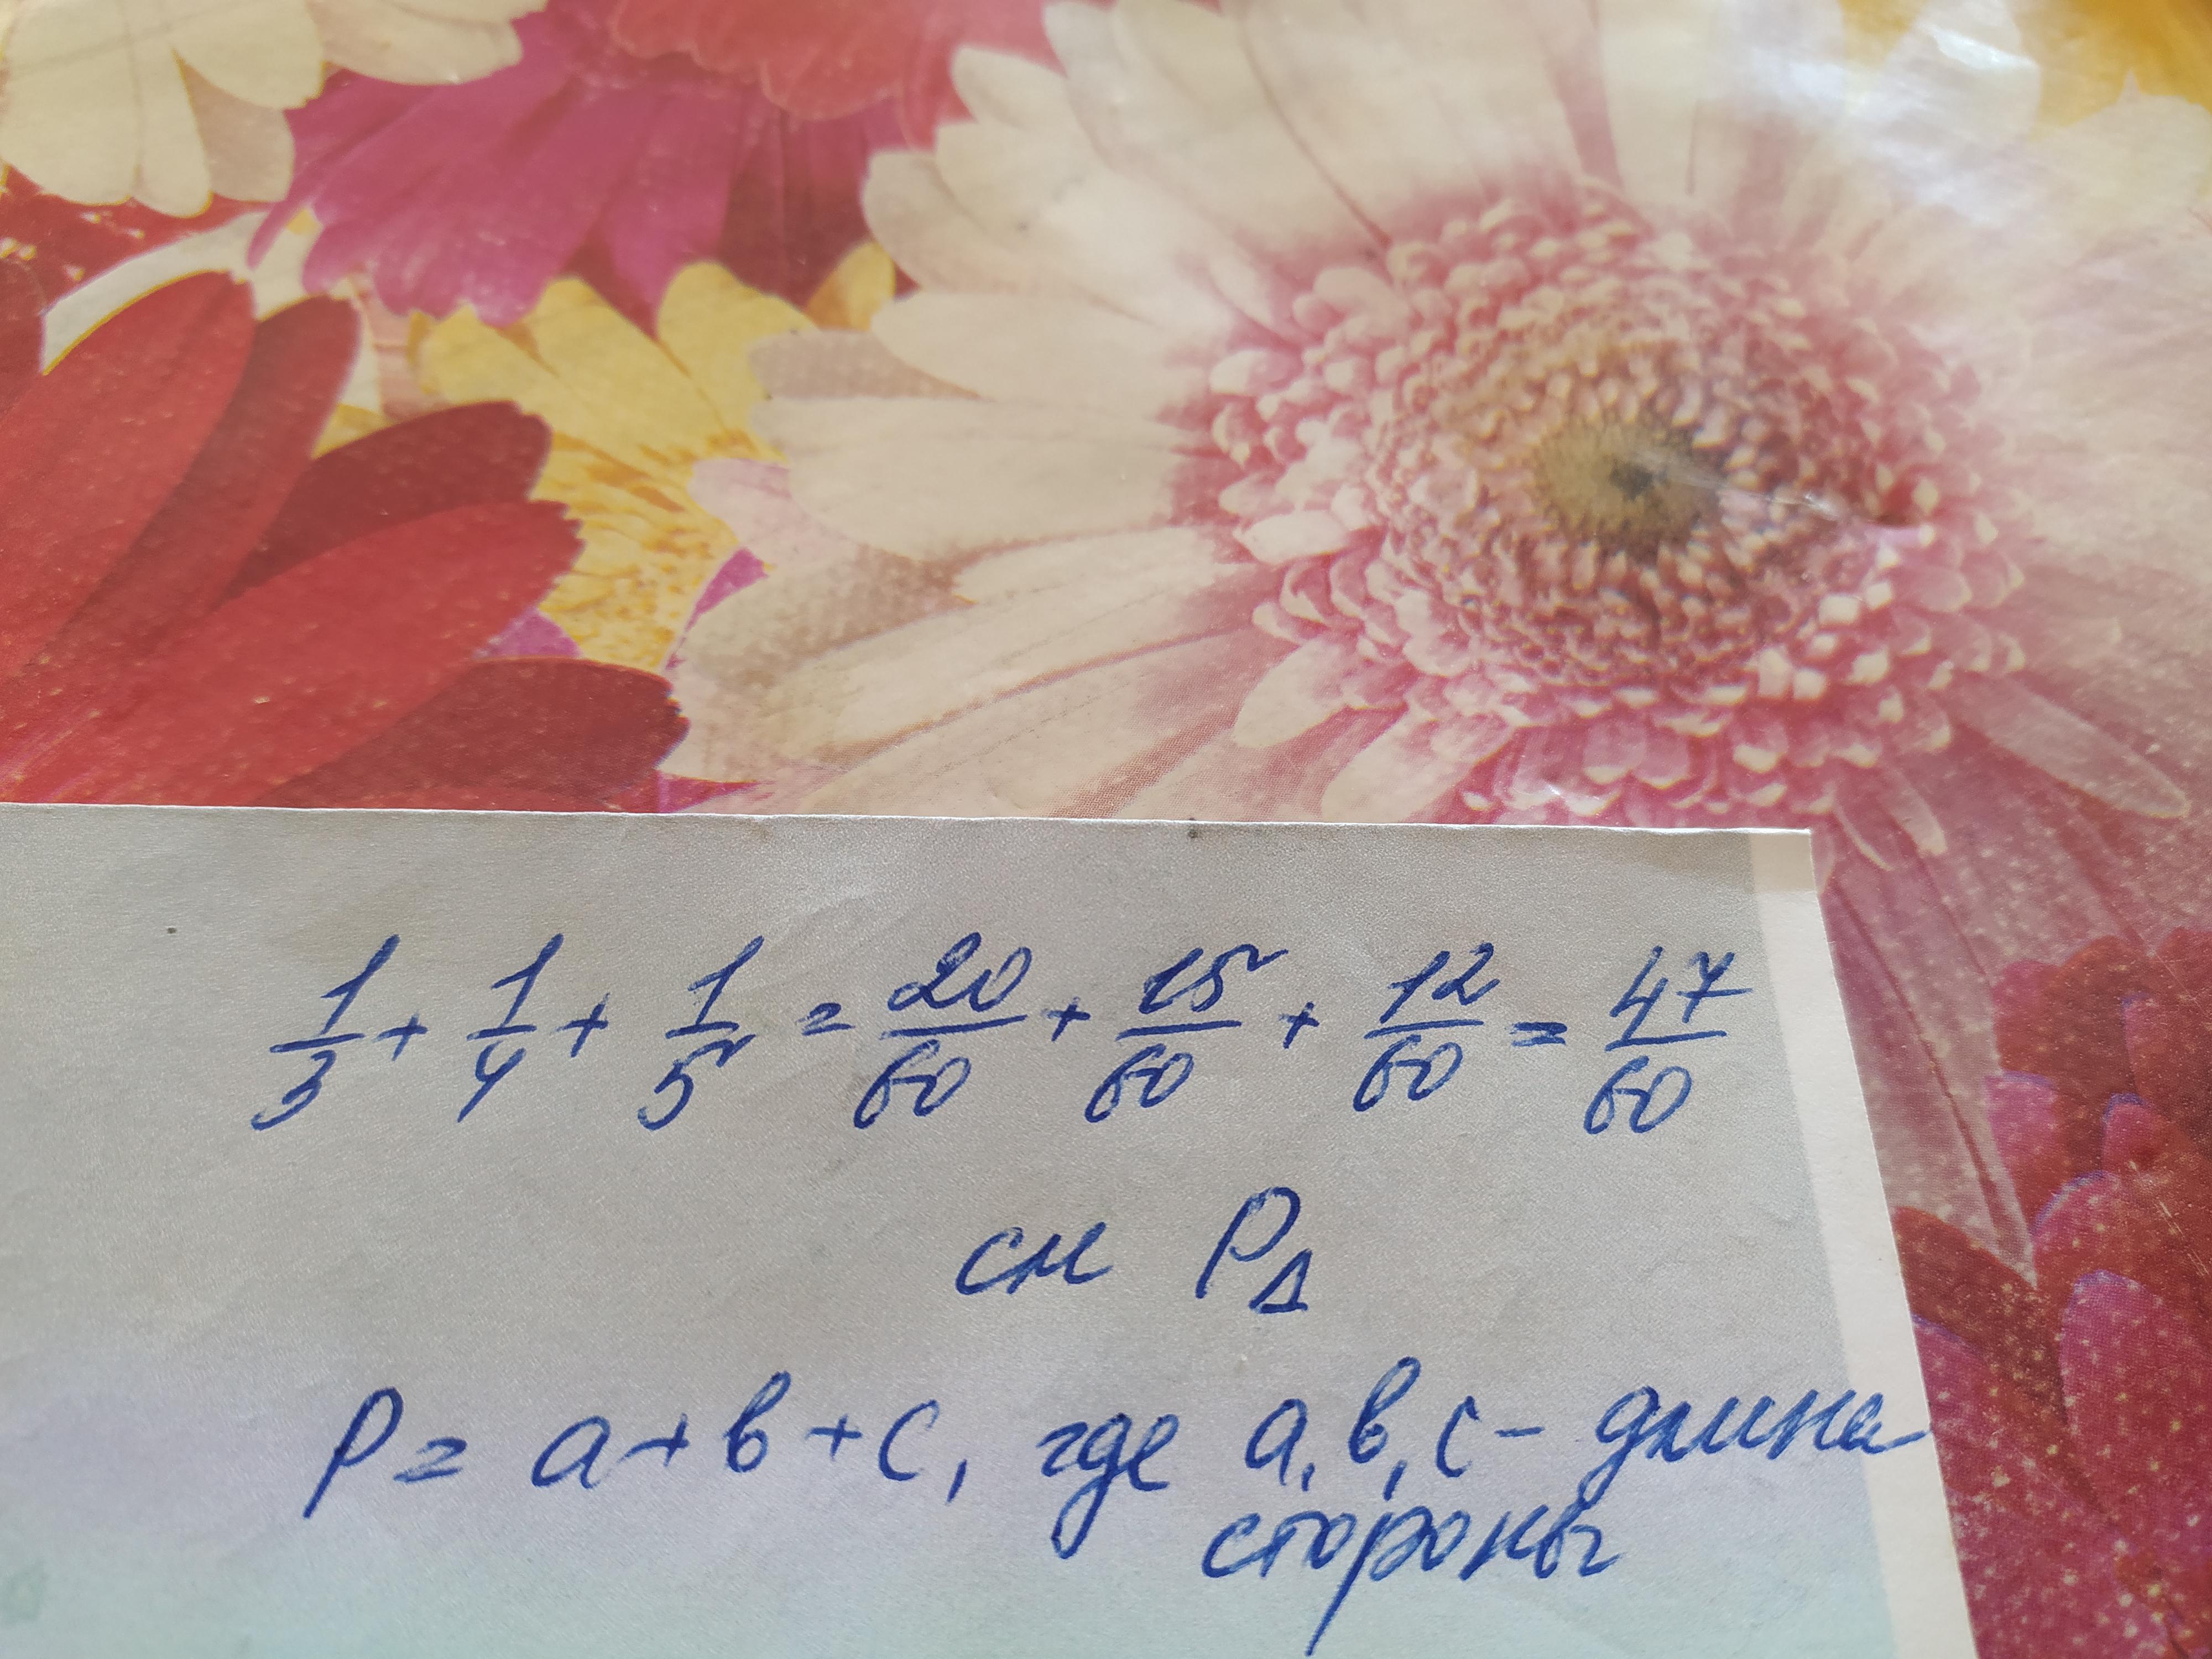 1/3 + 1/4 + 1/5 = 20/60 + 15/60 + 12/60 = 47/60
см P△
P = a + b + c, где a, b, c - длина
стороны